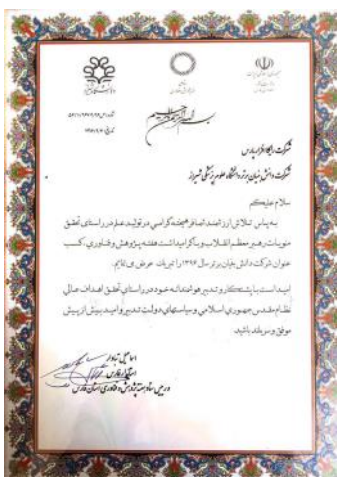 بسم الله الرحمن الرحیم
شرکت رایانه افزار پارس
شرکت دانش بنیان برتر دانشگاه علوم پزشکی شیراز
سلام علیکم
به پاس تلاش ارزشمند آن عزیز در تولید علم در راستای تحقق
منویات رهبر معظم انقلاب و با گرامیداشت هفته پژوهش و فناوری، کسب
عنوان شرکت دانش بنیان برتر سال ۱۳۹۶ را تبریک عرض می نمایم.
امید است با پشتکار و تدبیر هوشمندانه خود در راستای تحقق اهداف عالی
نظام مقدس جمهوری اسلامی و سیاستهای دولت تدبیر و امید بیش از پیش
موفق و سربلند باشید.
اسماعیل تبادار
استاندار فارس
و رییس ستاد هفته پژوهش و فناوری استان فارس